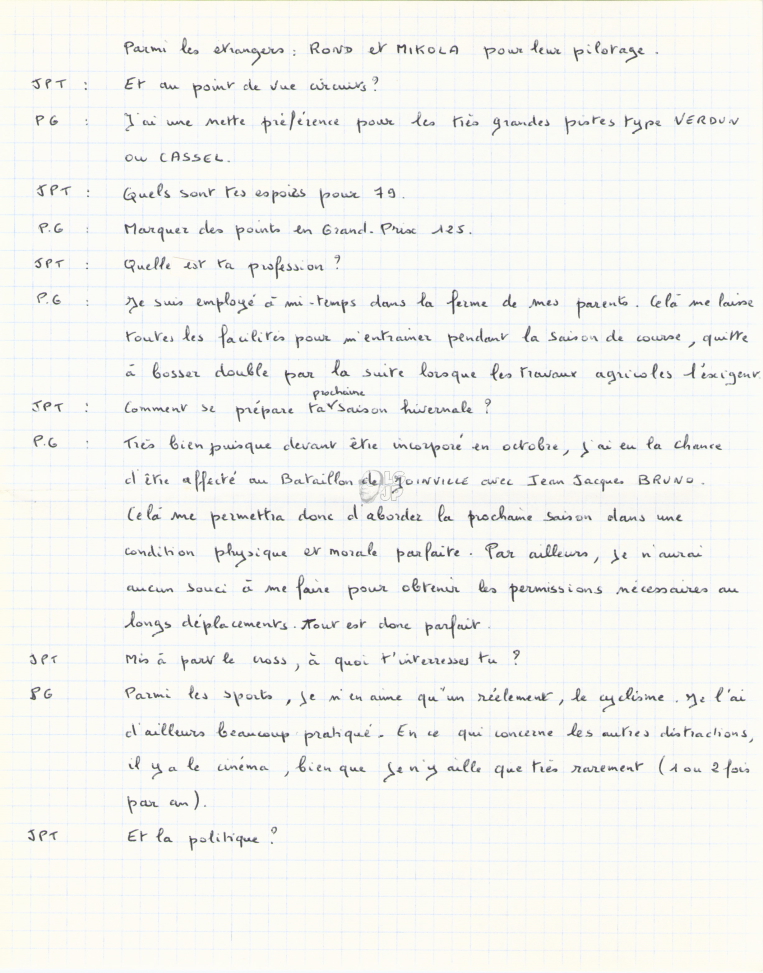 Parmi les etrangers : ROND et MIKOLA pour leur pilotage.
JPT : Et au point de vue circuits ?
PG : J'ai une nette préférence pour les très grandes pistes type VERDUN
ou CASSEL.
JPT : Quels sont tes espoirs pour 79.
P.G : Marquer des points en Grand-Prix 125.
JPT : Quelle est ta profession ?
P.G : Je suis employé à mi-temps dans la ferme de mes parents. Celà me laisse
toutes les facilités pour m'entrainer pendant la saison de course, quitte
à bosser double par la suite lorsque les travaux agricoles l'éxigent
prochaine
JPT : Comment se prépare ta saison hivernale ?
P.G : Très bien puisque devant être incorporé en octobre, j'ai eu la chance
d'être affecté au Bataillon de JOINVILLE avec Jean Jacques BRUNO.
Celà me permettra donc d'aborder la prochaine saison dans une
condition physique et morale parfaite. Par ailleurs, je n'aurai
aucun souci à me faire pour obtenir les permissions nécessaires au
longs déplacements. Tout est donc parfait.
JPT Mis à part le cross, à quoi t'interresses tu ?
PG Parmi les sports, je n'en aime qu'un réelement, le cyclisme. Je l'ai
d'ailleurs beaucoup pratiqué. En ce qui concerne les autres distractions,
il y a le cinéma, bien que je n'y aille que très rarement (1 ou 2 fois
par an).
JPT Et la politique ?